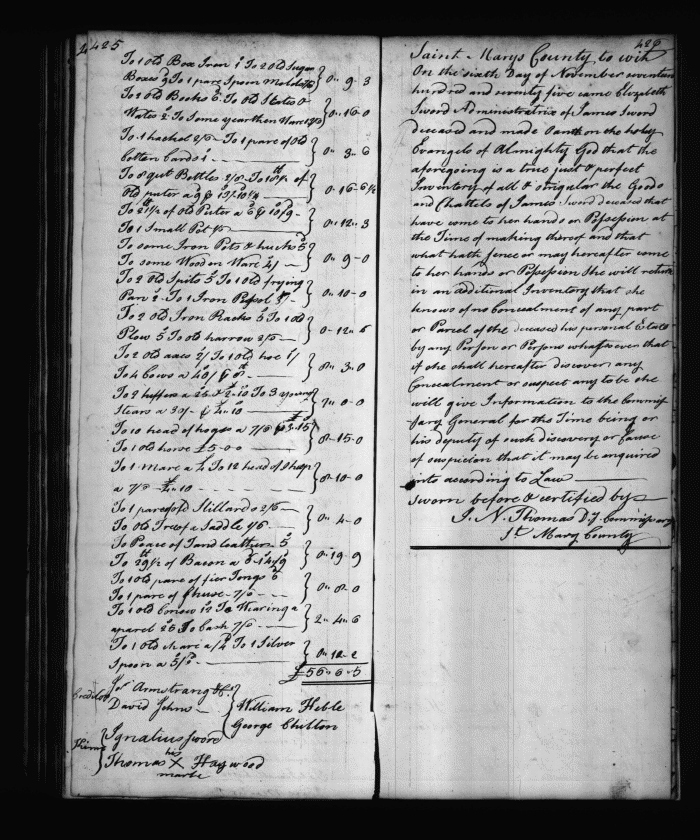 425
To 1 old Box Iron 1/ To 2 old Sugar
Boxes To 1 pare Spoon Molds } 0 " 9 - 3
To 2 old Books 6/ To old Slates &
To Some } 0 " 16 - 0
To 1 hachel 2/6 - To 1 pare of old
Cotten Cards 1/ } 0 " 3 - 6
To 8 qut Bottles 2/8 - To of
old puter a 9 } 0 - 16 - 6 1/2
To 21 1/2 of old Puter a 6 10/9 -
To 1 Small Pot } 0 " 12 " 3
To some Iron Pots & hucks 5
To some Wooden Ware 4/ } 0 " 9 - 0
To 2 Old Spits 5 To 1 old frying
Pan 2 - To 1 Iron } 0 " 10 - 0
To 2 old Iron Racks 5 To 1 old
Plow 5 To old harrow 2/6 } 0 - 12 - 6
To 2 old axes 2/ To 1 old hoe 1/
To 4 Cows a 40/ £ 8 } 8 " 3 - 0
To 2 heffers a 25 £ 2-10 To 3 young
Stears a 30/- £ 4-10 } 7 " 0 - 0
To 10 head of hogs a 7/6 £ 3-15
To 1 old horse £ 5-0-0 } 8 - 15 - 0
To 1 Mare a To 12 head of Sheep
a 7/6 £ 4 " 10 } 8 - 10 - 0
To 1 pare of old Stillards 2/6
To old Tree of a Saddle 1/6 } 0 " 4 - 0
To Peace of Tand leather 5
To 29 1/2 of Bacon a 6 - 14/9 } 0 - 19 - 9
To 1 old pare of fier Tongs 6
To 1 pare of 7/6 } 0 " 8 - 0
To 1 old 12 To Wearing
aparel 25 To Cash 7/6 } 2 " 4 - 6
To 1 old share a /4 To 1 Silver
Spoon a 5/ } 0 " 12 - 2
£ 56 - 6 - 5
Creditors Js Armstrang &C
David Johns } William Heble
George Chilton
Ignatius Sword
his
Thomas X Haywood
marke
426
Saint Marys County to wit
On the sixth Day of November seventeen
hundred and seventy five came Elizabeth
Sword Administratrix of James Sword
deceased and made Oath on the holy
Evangels of Almighty God that the
aforegoing is a true just & perfect
Inventory of all & singular the Goods
and Chattels of James Sword deceased that
have come to her hands or Possession at
the Time of making thereof and that
what hath since or may hereafter come
to her hands or Possession She will return
in an additional Inventory that she
knows of no Concealment of any part
or Parcel of the deceased his personal Estate
by any Person or Persons whatsoever that
if she shall hereafter discover any
Concealment or suspect any to be she
will give Information to the Commis
sary General for the Time being or
his deputy of such discovery or Cause
of suspicion that it may be enquired
into according to Law
Sworn before & certified by
J. N. Thomas Dy Commissary
St. Mary County